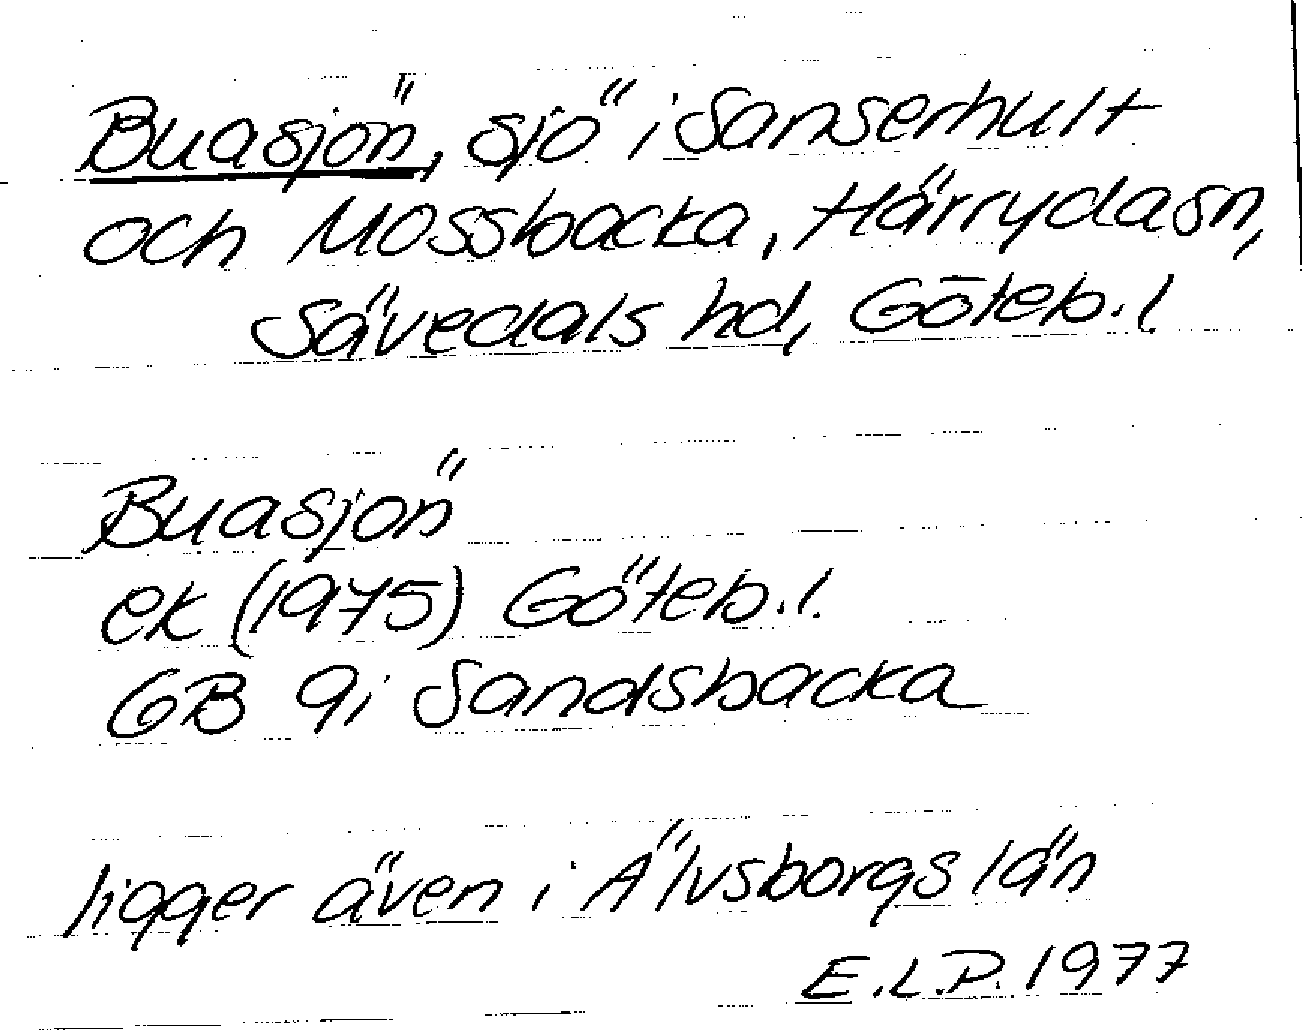 Buasjön, sjö i Sanserhult
och Mossbacka, Härryda sn,
Sävedals hd, Göteb. l.
Buasjön
ek (1975) Göteb. l.
GB 9i Sandsbacka
ligger även i Älvsborgs län
E.L.P. 1977